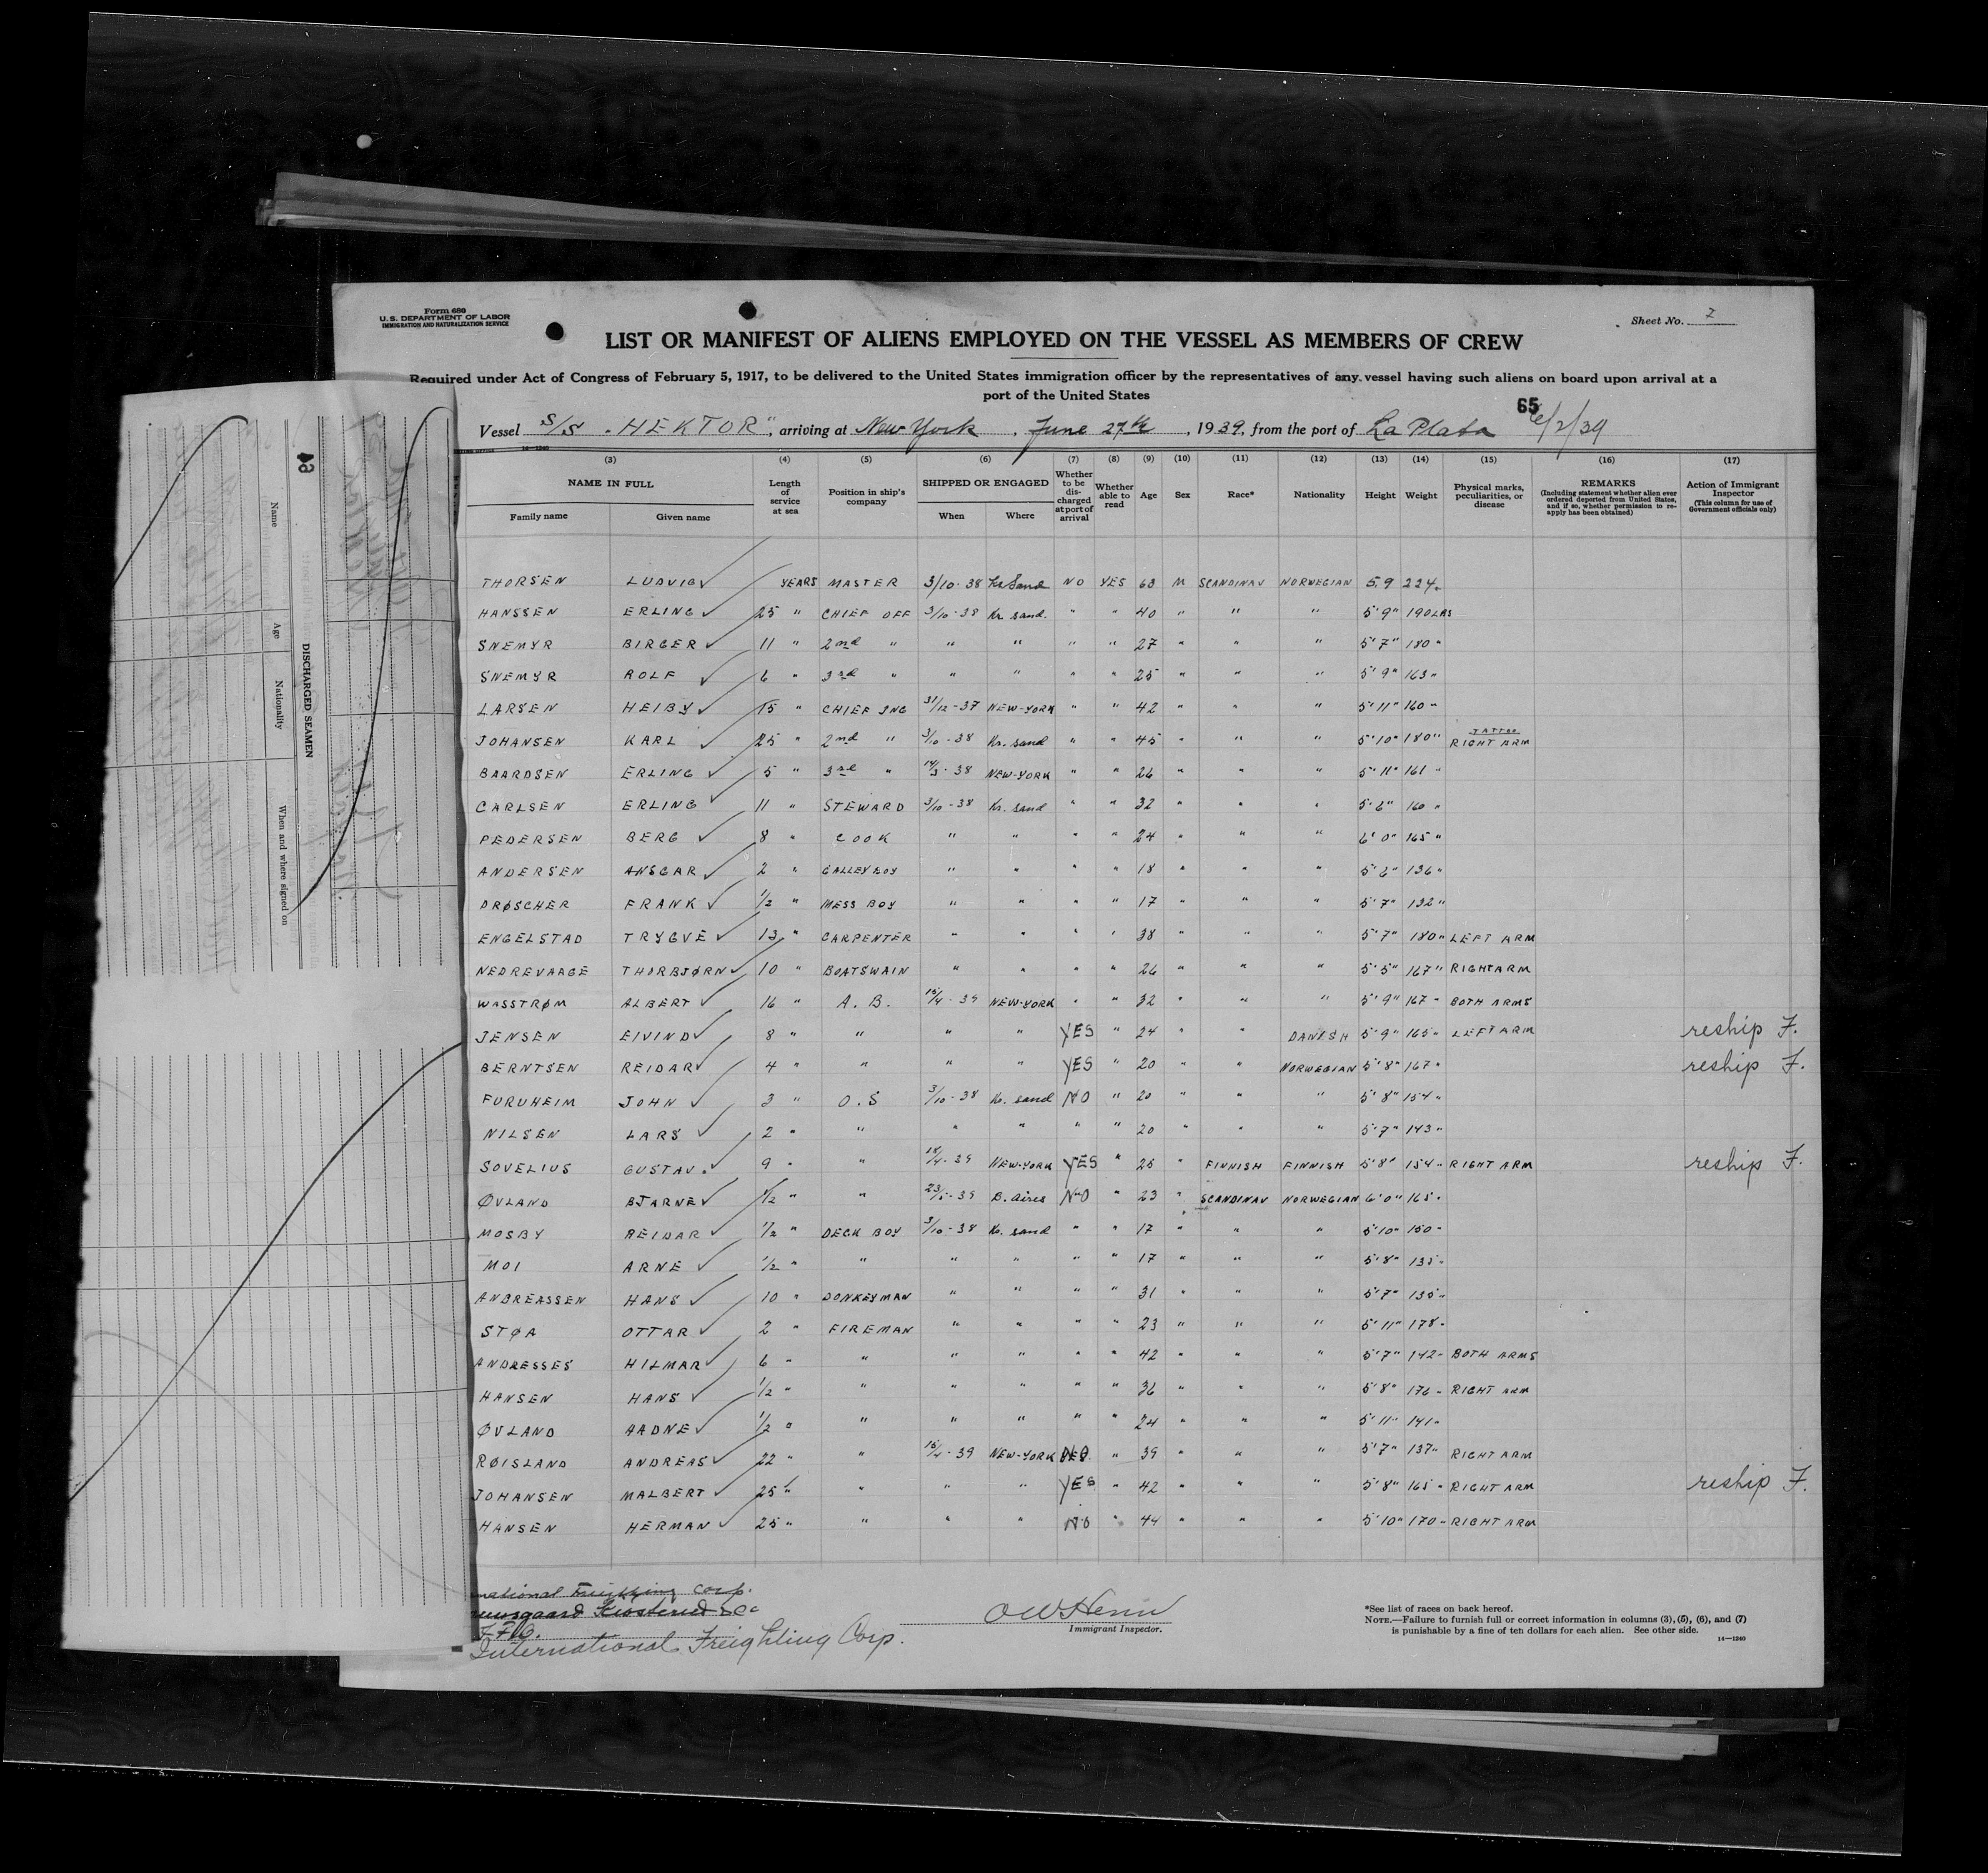 Form 680
U.S. DEPARTMENT OF LABOR
IMMIGRATION AND NATURALIZATION SERVICE
Sheet No.
LIST OR MANIFEST OF ALIENS EMPLOYED ON THE VESSEL AS MEMBERS OF CREW
Required under Act of Congress of February 5, 1917, to be delivered to the United States immigration officer by the representatives of any vessel having such aliens on board upon arrival at a
port of the United States
65
Vessel S/S "HEKTOR", arriving at New York, June 27th, 1939, from the port of La Plata 6/2/39
(3) (4) (5) (6) (7) (8) (9) (10) (11) (12) (13) (14) (15) (16) (17)
NAME IN FULL Family name Given name Length of service at sea Position in ship's company SHIPPED OR ENGAGED When Where Whether to be discharged at port of arrival Whether able to read Age Sex Race* Nationality Height Weight Physical marks, peculiarities, or disease REMARKS (Including statement whether alien ever ordered deported from United States, and if so, whether permission to reapply has been obtained) Action of Immigrant Inspector (This column for use of Government officials only)
THORSEN LUDVIG YEARS MASTER 3/10-38 Kr Sand NO YES 63 M SCANDINAV NORWEGIAN 5.9 224
HANSSEN ERLING 25 " CHIEF OFF 3/10-38 Kr. sand. " " 40 " " " 5'9" 190 LBS
SNEMYR BIRGER 11 " 2nd " " " " " 27 " " " 5'7" 180 "
SNEMYR ROLF 6 " 3rd " " " " " 25 " " " 5'9" 163 "
LARSEN HEIBY 15 " CHIEF ING 31/12-37 NEW-YORK " " 42 " " " 5'11" 160 "
JOHANSEN KARL 25 " 2nd " 3/10-38 Kr. sand " " 45 " " " 5'10" 180 " TATTOO RIGHT ARM
BAARDSEN ERLING 5 " 3rd " 14/3-38 NEW-YORK " " 26 " " " 5'11" 161 "
CARLSEN ERLING 11 " STEWARD 3/10-38 Kr. sand " " 32 " " " 5'6" 160 "
PEDERSEN BERG 8 " COOK " " " " 24 " " " 6'0" 165 "
ANDERSEN ANSGAR 2 " GALLEY BOY " " " " 18 " " " 5'6" 136 "
DRØSCHER FRANK 1/2 " MESS BOY " " " " 17 " " " 5'7" 132 "
ENGELSTAD TRYGVE 13 " CARPENTER " " " " 38 " " " 5'7" 180 " LEFT ARM
NEDREVAAGE THORBJØRN 10 " BOATSWAIN " " " " 26 " " " 5'5" 167 " RIGHT ARM
WASSTRØM ALBERT 16 " A. B. 15/4-39 NEW-YORK " " 32 " " " 5'9" 167 " BOTH ARMS
JENSEN EIVIND 8 " " " " YES " 24 " " DANISH 5'9" 165 " LEFT ARM reship F.
BERNTSEN REIDAR 4 " " " " YES " 20 " " NORWEGIAN 5'8" 167 " reship F.
FURUHEIM JOHN 3 " O.S 3/10-38 Kr. sand NO " 20 " " " 5'8" 154 "
NILSEN LARS 2 " " " " " " 20 " " " 5'7" 143 "
SOVELIUS GUSTAV. 9 " " 15/4-39 NEW-YORK YES " 25 " FINNISH FINNISH 5'8" 154 " RIGHT ARM reship F.
ØVLAND BJARNE 1/2 " " 23/5-39 B. aires NO " 23 " SCANDINAV NORWEGIAN 6'0" 165 "
MOSBY REIDAR 1/2 " DECK BOY 3/10-38 Kr. sand " " 17 " " " 5'10" 150 "
MOI ARNE 1/2 " " " " " " 17 " " " 5'8" 135 "
ANDREASSEN HANS 10 " DONKEYMAN " " " " 31 " " " 5'7" 135 "
STØA OTTAR 2 " FIREMAN " " " " 23 " " " 5'11" 178 "
ANDRESSES HILMAR 6 " " " " " " 42 " " " 5'7" 142 " BOTH ARMS
HANSEN HANS 1/2 " " " " " " 36 " " " 5'8" 176 " RIGHT ARM
ØVLAND AADNE 1/2 " " " " " " 24 " " " 5'11" 141 "
RØISLAND ANDREAS 22 " " 15/4-39 NEW-YORK NO " 39 " " " 5'7" 137 " RIGHT ARM
JOHANSEN MALBERT 25 " " " " YES " 42 " " " 5'8" 165 " RIGHT ARM reship F.
HANSEN HERMAN 25 " " " " NO " 44 " " " 5'10" 170 " RIGHT ARM
national Freighting Corp.
Klosterud
International Freighting Corp.
Immigrant Inspector.
*See list of races on back hereof.
NOTE.—Failure to furnish full or correct information in columns (3), (5), (6), and (7)
is punishable by a fine of ten dollars for each alien. See other side.
14—1240
64
DISCHARGED SEAMEN
Name Age Nationality When and where signed on